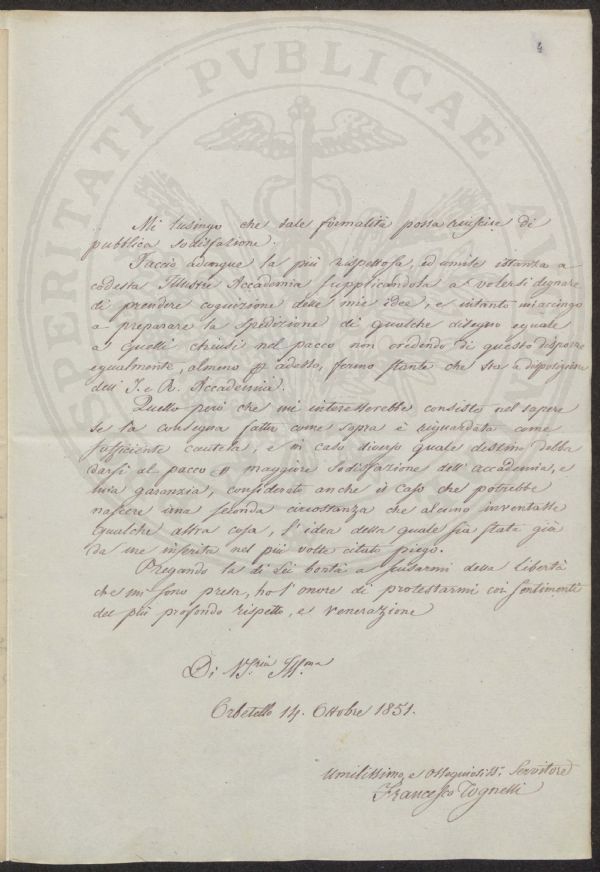 4
Mi lusingo che tale formalità possa riuscire di
pubblica sodisfazione.
Faccio adunque la più rispettosa, ed umile istanza a
codesta Illustre Accademia supplicandola a volersi degnare
di prendere cognizione delle mie idee, e intanto m'accingo
a preparare la spedizione di qualche disegno eguale
a quelli chiusi nel pacco non credendo di questo disporre
egualmente, almeno p adesso, fermo stante che sta a disposizione
dell' I. e R. Accademia.
Quello però che mi interesserebbe consiste nel sapere
se la consegna fatta come sopra è riguardata come
sufficiente cautela, e in caso diverso quale destino debba
darsi al pacco p maggiore sodisfazione dell' accademia, e
mia garanzia, considerato anche il caso che potrebbe
nascere una seconda circostanza che alcuno inventasse
qualche altra cosa, l'idea della quale sia stata già
da me inserita nel più volte citato piego.
Pregando la di Lei bontà a scusarmi della libertà
che mi sono presa, ho l'onore di protestarmi coi sentimenti
del più profondo rispetto, e venerazione
Di V.ria Ill.ma
Orbetello 14. Ottobre 1851.
Umilissimo, e Ossequiosiss. Servitore
Francesco Tognelli
PROSPERITATI PVBLICAE